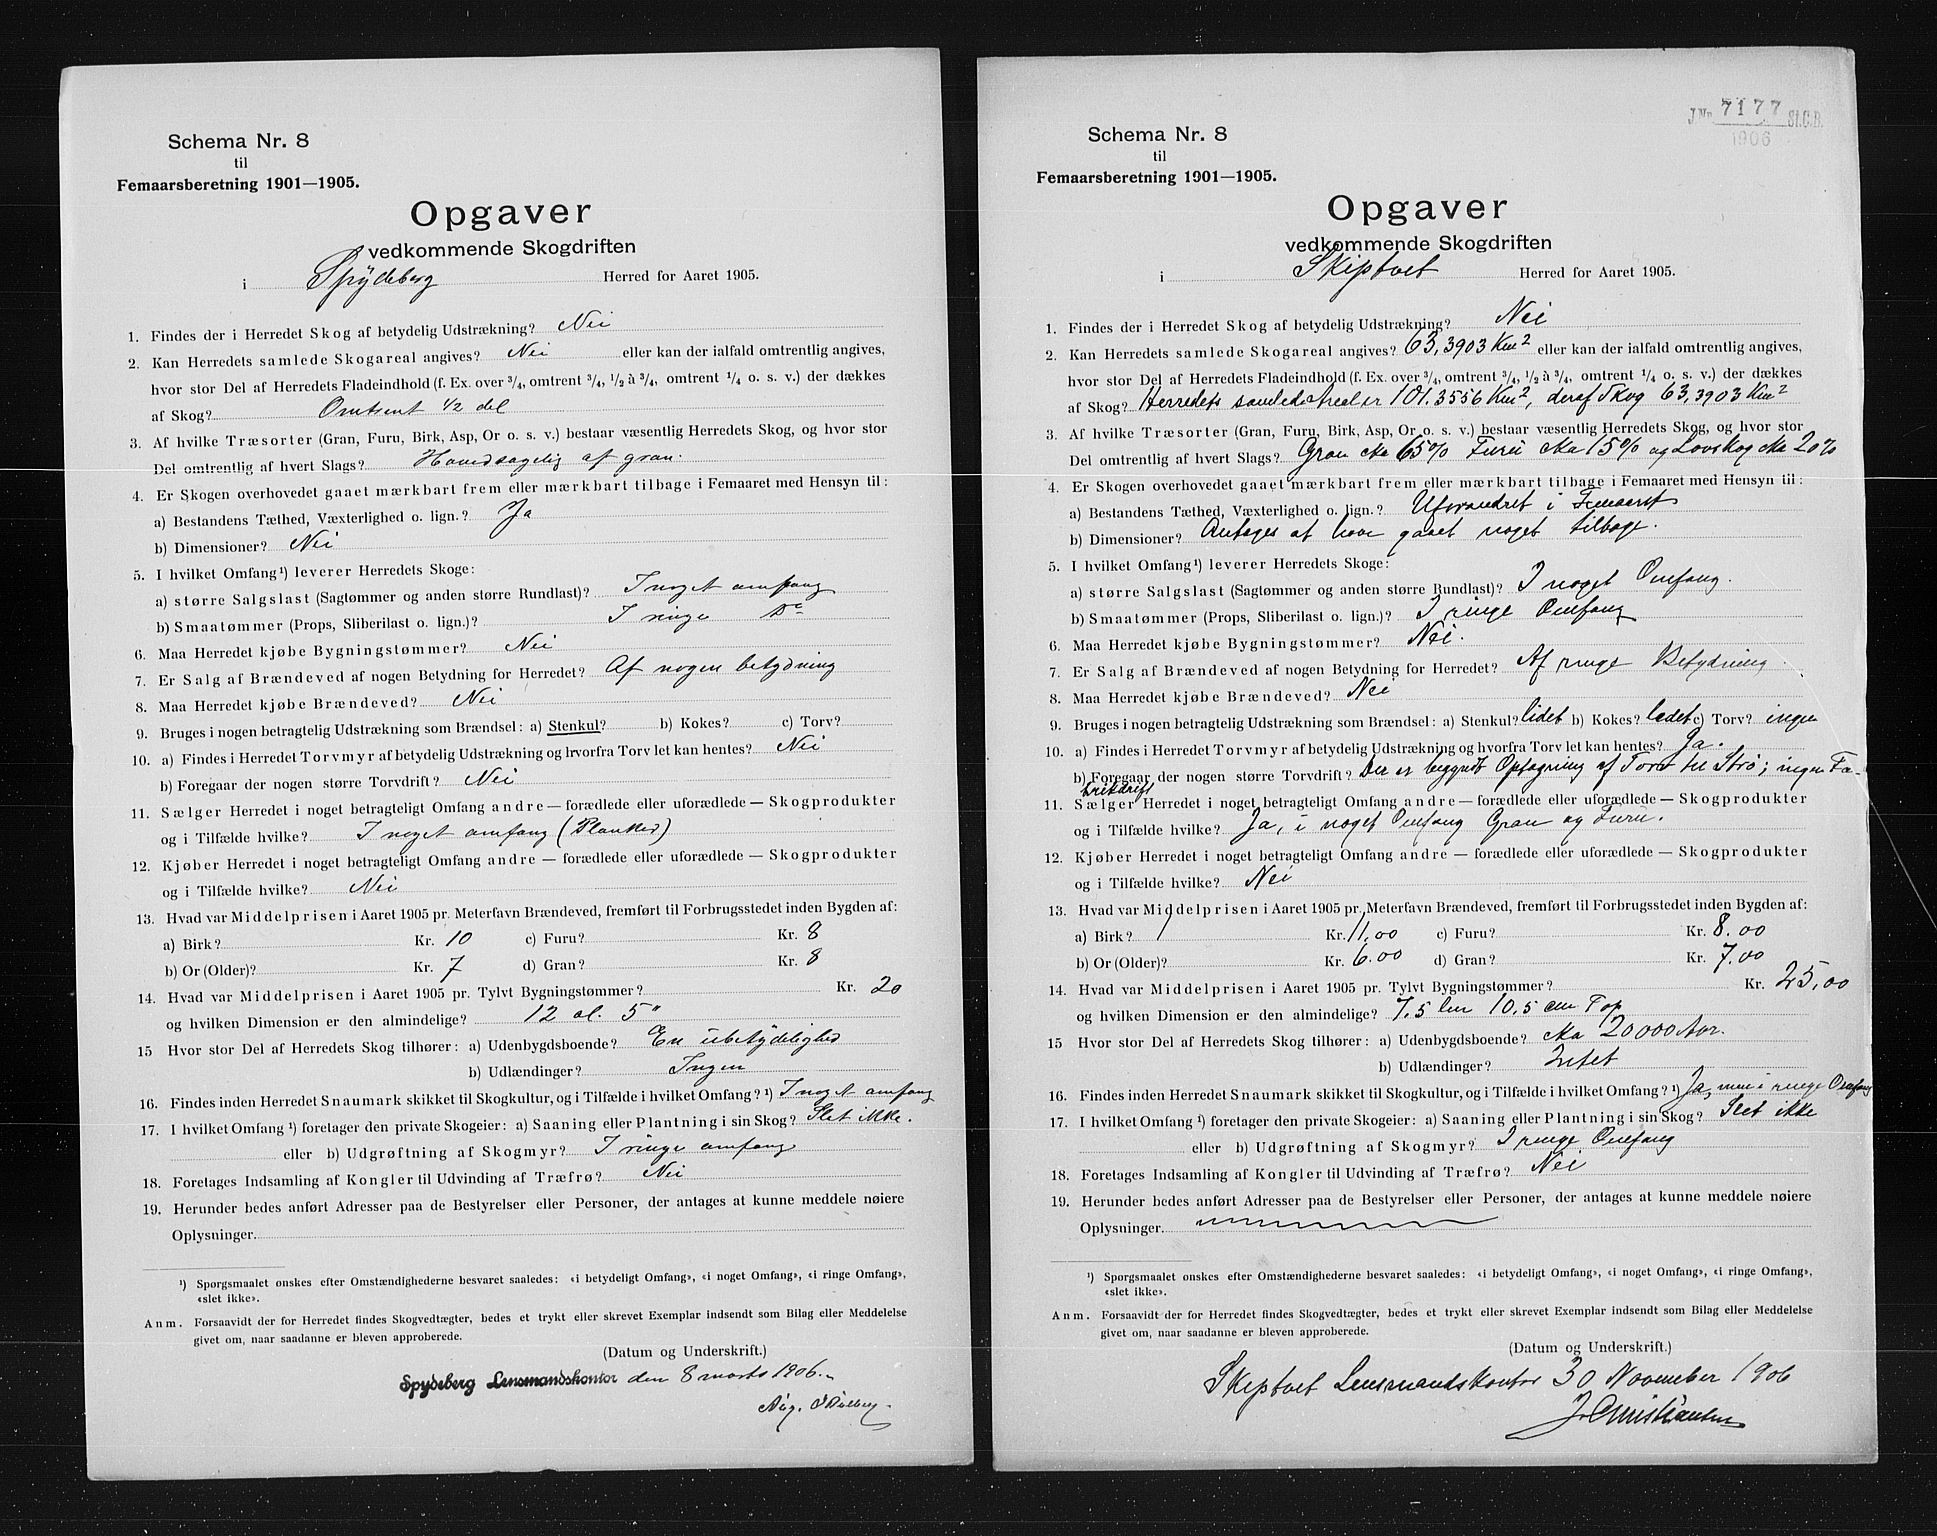 Schema Nr. 8
til
Femaarsberetning 1901—1905.
Opgaver
vedkommende Skogdriften
i Spydeberg Herred for Aaret 1905.
1. Findes der i Herredet Skog af betydelig Udstrækning? Nei
2. Kan Herredets samlede Skogareal angives? Nei eller kan der ialfald omtrentlig angives,
hvor stor Del af Herredets Fladeindhold (f. Ex. over 3/4, omtrent 3/4, 1/2 à 3/4, omtrent 1/4 o. s. v.) der dækkes
af Skog? Omtrent 1/2 del
3. Af hvilke Træsorter (Gran, Furu, Birk, Asp, Or o. s. v.) bestaar væsentlig Herredets Skog, og hvor stor
Del omtrentlig af hvert Slags? Hovedsagelig af gran.
4. Er Skogen overhovedet gaaet mærkbart frem eller mærkbart tilbage i Femaaret med Hensyn til:
a) Bestandens Tæthed, Växterlighed o. lign.? Ja
b) Dimensioner? Nei
5. I hvilket Omfang¹) leverer Herredets Skoge:
a) større Salgslast (Sagtømmer og anden større Rundlast)? I noget omfang
b) Smaatømmer (Props, Sliberilast o. lign.)? I ringe Do
6. Maa Herredet kjøbe Bygningstømmer? Nei
7. Er Salg af Brændeved af nogen Betydning for Herredet? Af nogen betydning
8. Maa Herredet kjøbe Brændeved? Nei
9. Bruges i nogen betragtelig Udstrækning som Brændsel: a) Stenkul? b) Kokes? c) Torv?
10. a) Findes i Herredet Torvmyr af betydelig Udstrækning og hvorfra Torv let kan hentes? Nei
b) Foregaar der nogen større Torvdrift? Nei
11. Sælger Herredet i noget betragteligt Omfang andre — forædlede eller uforædlede — Skogprodukter
og i Tilfælde hvilke? I noget omfang (Planked)
12. Kjøber Herredet i noget betragteligt Omfang andre — forædlede eller uforædlede — Skogprodukter
og i Tilfælde hvilke? Nei
13. Hvad var Middelprisen i Aaret 1905 pr. Meterfavn Brændeved, fremført til Forbrugsstedet inden Bygden af:
a) Birk? Kr. 10 c) Furu? Kr. 8
b) Or (Older)? Kr. 7 d) Gran? Kr. 8
14. Hvad var Middelprisen i Aaret 1905 pr. Tylvt Bygningstømmer? Kr. 20
og hvilken Dimension er den almindelige? 12 al. 5"
15 Hvor stor Del af Herredets Skog tilhører: a) Udenbygdsboende? En ubetydelighed
b) Udlændinger? Ingen
16. Findes inden Herredet Snaumark skikket til Skogkultur, og i Tilfælde i hvilket Omfang? ¹) I noget omfang
17. I hvilket Omfang ¹) foretager den private Skogeier: a) Saaning eller Plantning i sin Skog? Slet ikke.
eller b) Udgrøftning af Skogmyr? I ringe omfang
18. Foretages Indsamling af Kongler til Udvinding af Træfrø? Nei
19. Herunder bedes anført Adresser paa de Bestyrelser eller Personer, der antages at kunne meddele nøiere
Oplysninger.
¹) Spørgsmaalet ønskes efter Omstændighederne besvaret saaledes: «i betydeligt Omfang», «i noget Omfang», «i ringe Omfang»,
«slet ikke».
Anm. Forsaavidt der for Herredet findes Skogvedtægter, bedes et trykt eller skrevet Exemplar indsendt som Bilag eller Meddelelse
givet om, naar saadanne er bleven approberede.
(Datum og Underskrift.)
Spydeberg Lensmandskontor den 8 marts 1906.
Aug.
J.Nr. 7177 St.C.B.
1906
Schema Nr. 8
til
Femaarsberetning 1901—1905.
Opgaver
vedkommende Skogdriften
i Skiptvet Herred for Aaret 1905.
1. Findes der i Herredet Skog af betydelig Udstrækning? Nei
2. Kan Herredets samlede Skogareal angives? 63,3903 Km² eller kan der ialfald omtrentlig angives,
hvor stor Del af Herredets Fladeindhold (f. Ex. over 3/4, omtrent 3/4, 1/2 à 3/4, omtrent 1/4 o. s. v.) der dækkes
af Skog? Herredets samlede Areal er 101,3556 Km², deraf Skog 63,3903 Km²
3. Af hvilke Træsorter (Gran, Furu, Birk, Asp, Or o. s. v.) bestaar væsentlig Herredets Skog, og hvor stor
Del omtrentlig af hvert Slags? Gran cka 65% Furu cka 15% og Lovskog cka 20%
4. Er Skogen overhovedet gaaet mærkbart frem eller mærkbart tilbage i Femaaret med Hensyn til:
a) Bestandens Tæthed, Växterlighed o. lign.? Uforandret i Femaaret
b) Dimensioner? Antages at have gaaet noget tilbage.
5. I hvilket Omfang ¹) leverer Herredets Skoge:
a) større Salgslast (Sagtømmer og anden større Rundlast)? I noget Omfang.
b) Smaatømmer (Props, Sliberilast o. lign.)? I ringe Omfang
6. Maa Herredet kjøbe Bygningstømmer? Nei.
7. Er Salg af Brændeved af nogen Betydning for Herredet? Af ringe Betydning.
8. Maa Herredet kjøbe Brændeved? Nei
9. Bruges i nogen betragtelig Udstrækning som Brændsel: a) Stenkul? lidet b) Kokes? ledet c) Torv? ingen
10. a) Findes i Herredet Torvmyr af betydelig Udstrækning og hvorfra Torv let kan hentes? Ja.
b) Foregaar der nogen større Torvdrift? Der er begyndt Optagning af Torv til Strø; ingen Fa-
brikdrift
11. Sælger Herredet i noget betragteligt Omfang andre — forædlede eller uforædlede — Skogprodukter
og i Tilfælde hvilke? Ja, i noget Omfang Gran og Furu.
12. Kjøber Herredet i noget betragteligt Omfang andre — forædlede eller uforædlede — Skogprodukter
og i Tilfælde hvilke? Nei
13. Hvad var Middelprisen i Aaret 1905 pr. Meterfavn Brændeved, fremført til Forbrugsstedet inden Bygden af:
a) Birk? Kr. 11,00 c) Furu? Kr. 8.00
b) Or (Older)? Kr. 6.00 d) Gran? Kr. 7.00
14. Hvad var Middelprisen i Aaret 1905 pr. Tylvt Bygningstømmer? Kr. 25,00
og hvilken Dimension er den almindelige? 7,5 lm 10,5 cm Top
15 Hvor stor Del af Herredets Skog tilhører: a) Udenbygdsboende? cka 20000 Aar.
b) Udlændinger? Intet
16. Findes inden Herredet Snaumark skikket til Skogkultur, og i Tilfælde i hvilket Omfang? ¹) Ja, men i ringe Omfang
17. I hvilket Omfang ¹) foretager den private Skogeier: a) Saaning eller Plantning i sin Skog? Slet ikke
eller b) Udgrøftning af Skogmyr? I ringe Omfang
18. Foretages Indsamling af Kongler til Udvinding af Træfrø? Nei
19. Herunder bedes anført Adresser paa de Bestyrelser eller Personer, der antages at kunne meddele nøiere
Oplysninger.
¹) Spørgsmaalet ønskes efter Omstændighederne besvaret saaledes: «i betydeligt Omfang», «i noget Omfang», «i ringe Omfang»,
«slet ikke».
Anm. Forsaavidt der for Herredet findes Skogvedtægter, bedes et trykt eller skrevet Exemplar indsendt som Bilag eller Meddelelse
givet om, naar saadanne er bleven approberede.
(Datum og Underskrift.)
Skiptvet Lensmandskontor 30 November 1906
J. Christiansen